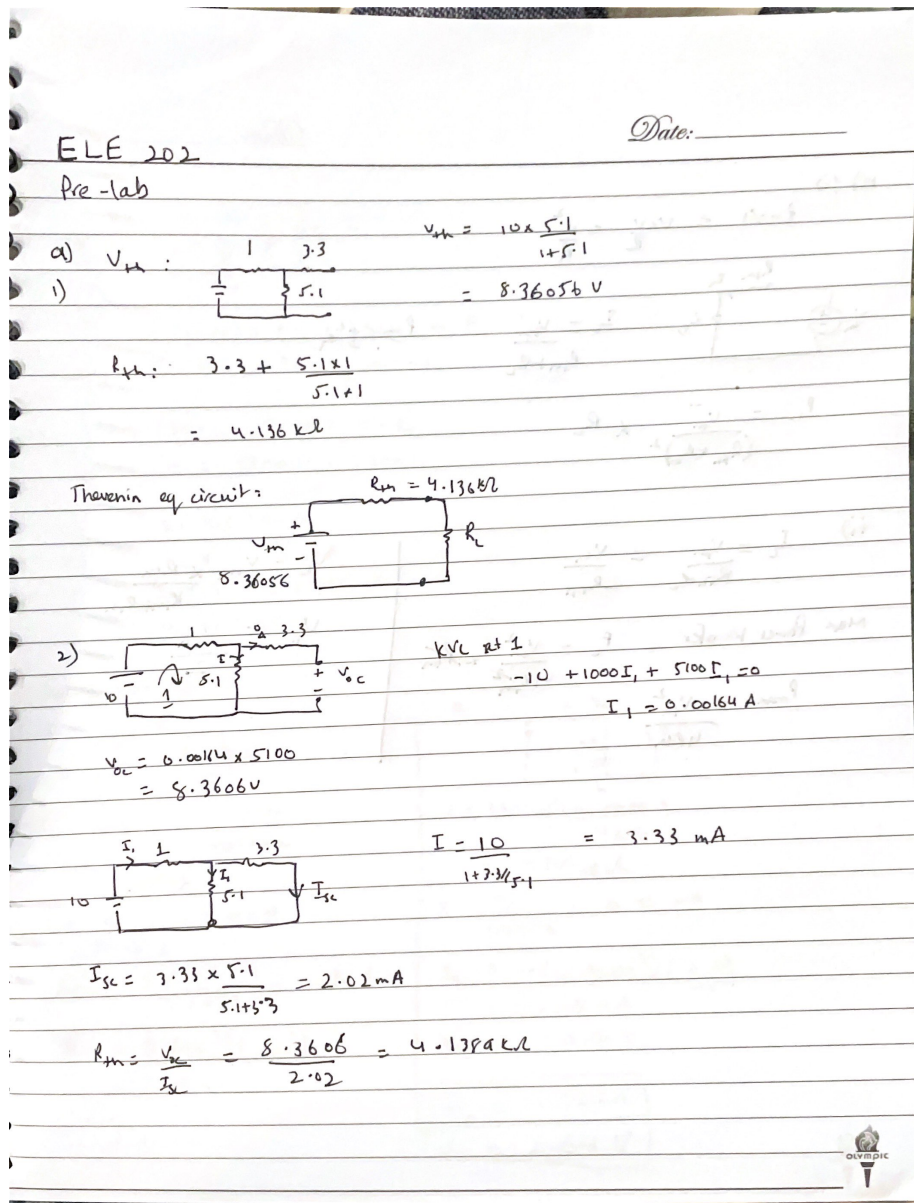 Date:
ELE 202
Pre-lab
a) Vth :
1)
1 3.3
5.1
Vth = 10 x 5.1
1+5.1
= 8.36056 V
Rth: 3.3 + 5.1x1
5.1+1
= 4.136 kΩ
Thevenin eq circuit:
Rth = 4.136kΩ
+
Vth
-
8.36056
RL
2)
1 3.3
10
1
I
5.1
0A
+
Voc
-
KVL at 1
-10 + 1000I1 + 5100I1 = 0
I1 = 0.00164 A
Voc = 0.00164 x 5100
= 8.3606V
I1 1 3.3
10
I1
5.1
Isc
I = 10 = 3.33 mA
1+3.3//5.1
Isc = 3.33 x 5.1 = 2.02mA
5.1+3.3
Rth = Voc = 8.3606 = 4.1389kΩ
Isc 2.02
OLYMPIC